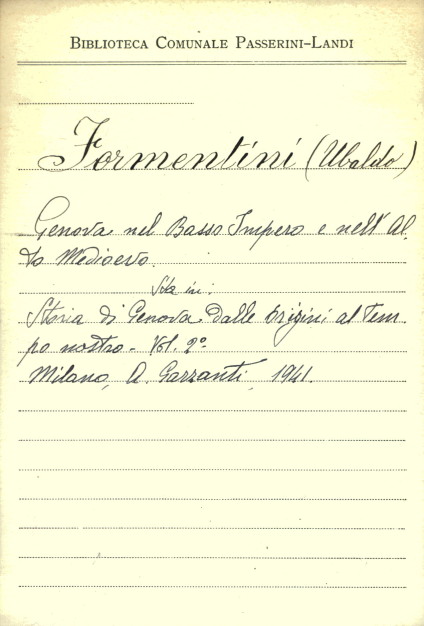 BIBLIOTECA COMUNALE PASSERINI-LANDI
Formentini (Ubaldo)
Genova nel Basso Impero e nell'Al-
to Medioevo.
Sta in:
Storia di Genova dalle origini al tem-
po nostro - Vol. 2º
Milano, A. Garzanti, 1941.